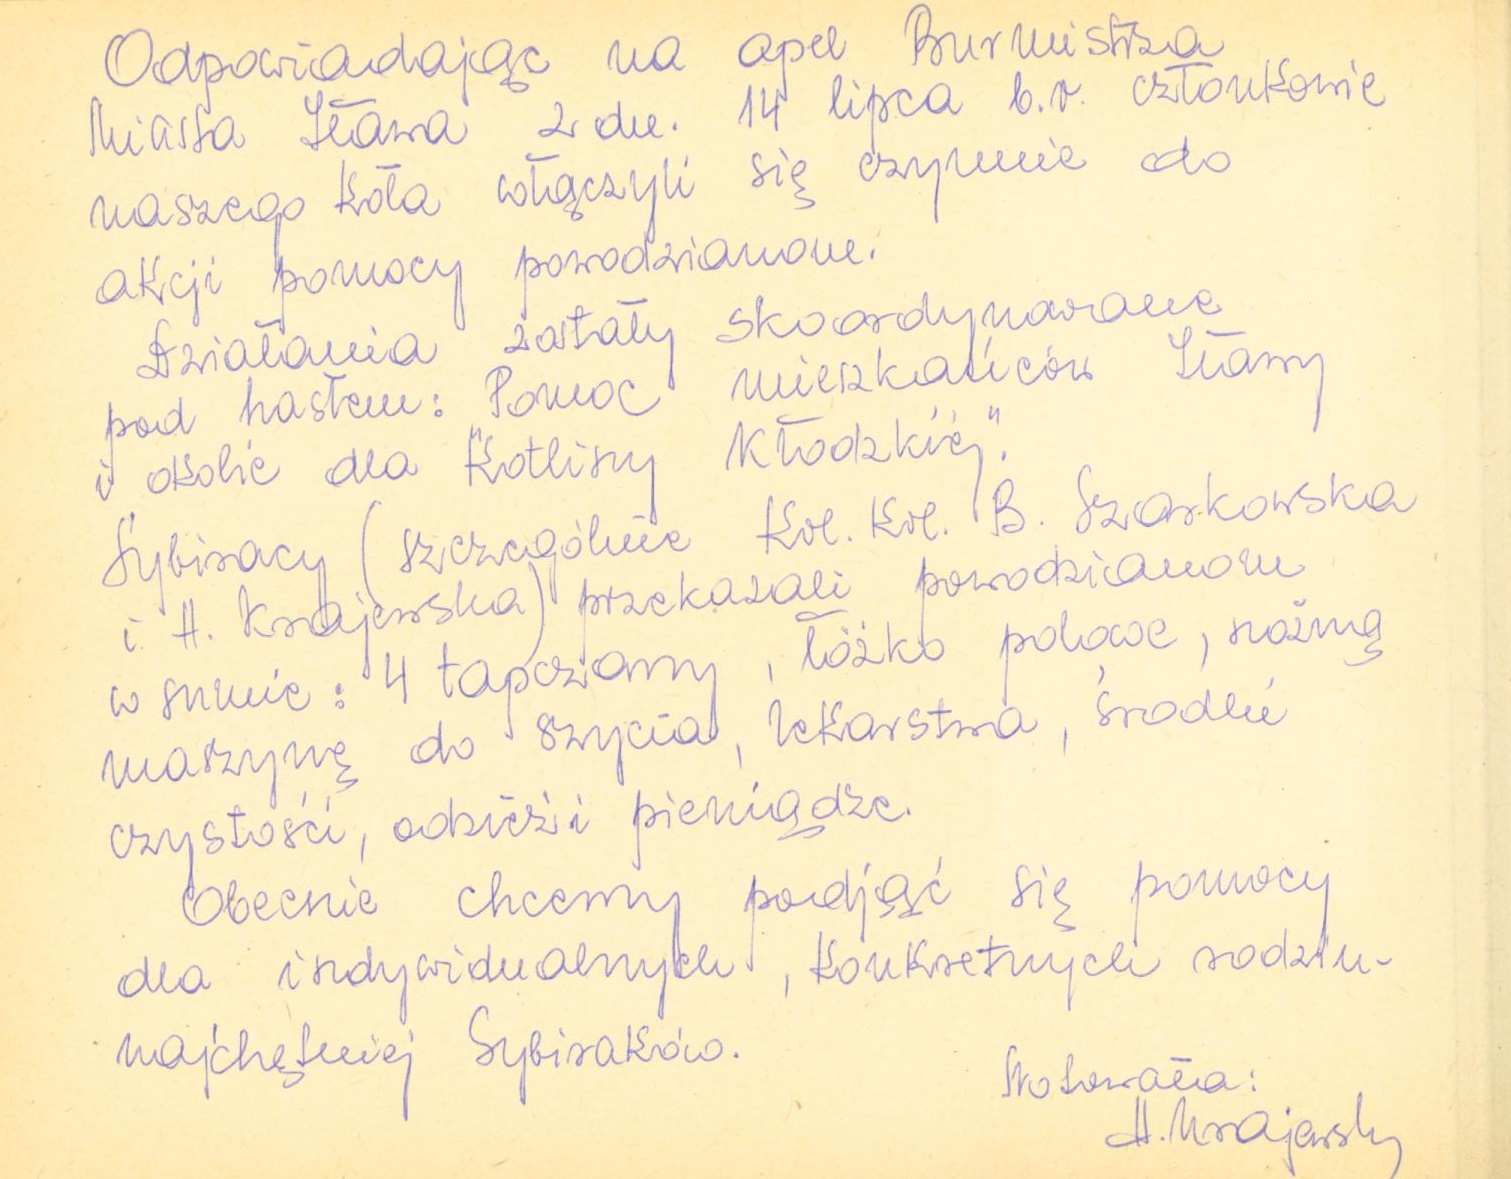 Odpowiadając na apel Burmistrza
Miasta Iława z dn. 14 lipca b.r. członkowie
naszego Koła włączyli się czynnie do
akcji pomocy powodzianom.
Działania zostały skoordynowane
pod hasłem: Pomoc mieszkańców Iławy
i okolic dla "Kotliny Kłodzkiej".
Sybiracy (szczególnie Kol. Kol. B. Szarkowska
i H. Krajewska) przekazali powodzianom
w sumie: 4 tapczany, łóżko polowe, nożną
maszynę do szycia, lekarstwa, środki
czystości, odzież i pieniądze.
Obecnie chcemy podjąć się pomocy
dla indywidualnych, konkretnych rodzin-
najchętniej Sybiraków.
Notowała:
H. Krajewska